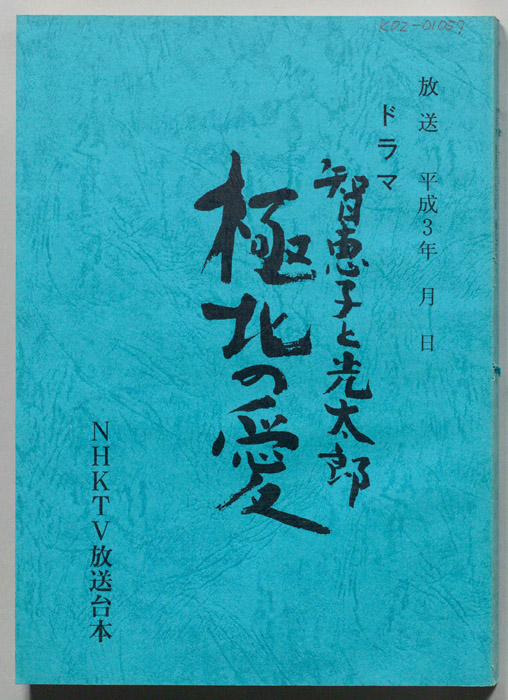 KDZ-01059
放送 平成3年 月 日
ドラマ
智恵子と光太郎
極北の愛
NHKTV放送台本